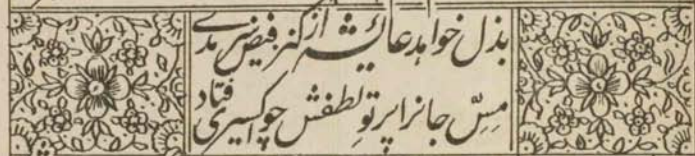 بذل خواهد عائشه از کنز فیض سرمدی
مسِّ جانرا پرتو لطفش چو اکسیری فتاد